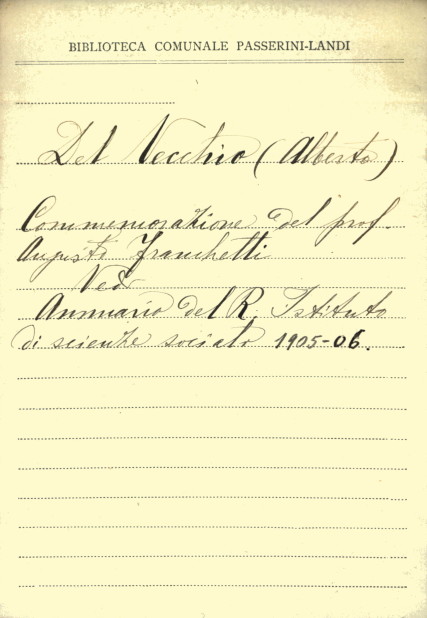 BIBLIOTECA COMUNALE PASSERINI-LANDI
Del Vecchio (Alberto)
Commemorazione del prof.
Augusto Franchetti
Vedi
Annuario del R. Istituto
di scienze 1905-06.